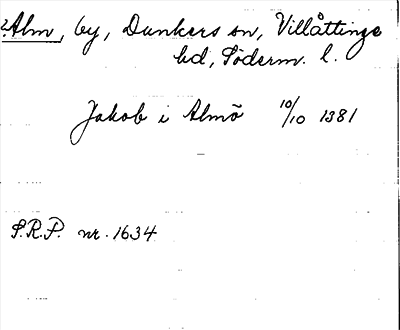 2. Alm, by, Dunkers sn, Villåttinge
hd, Söderm. l.
Jakob i Almö 10/10 1381
S.R.P. nr. 1634